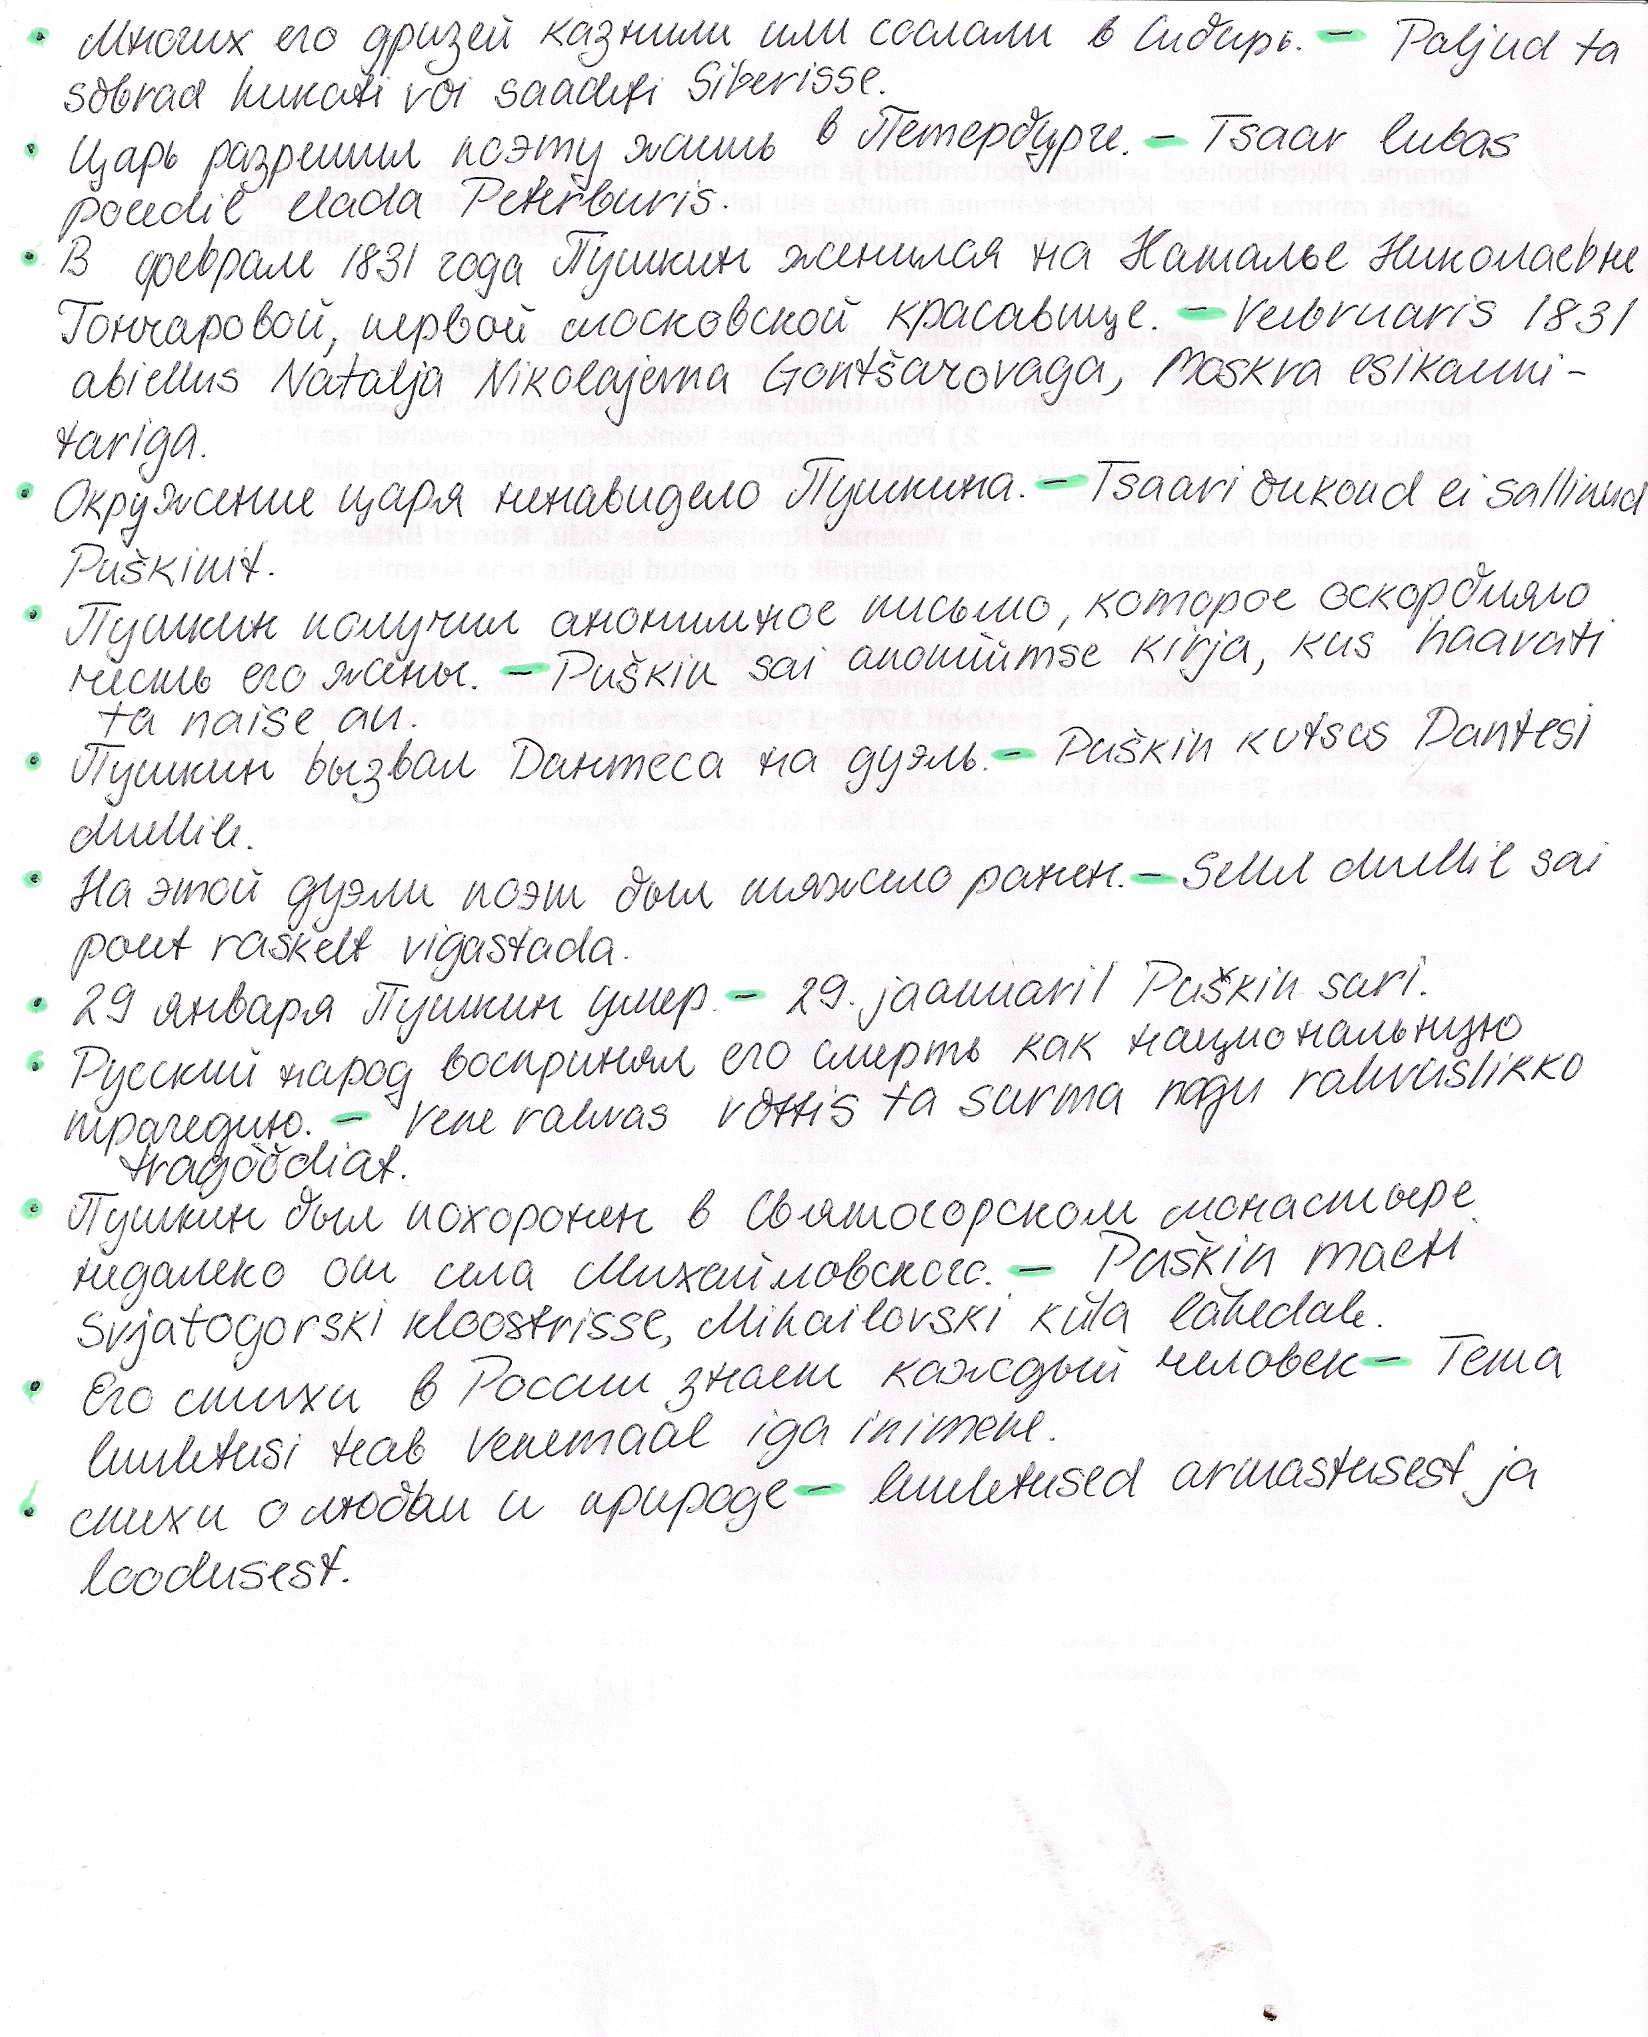 • Многих его друзей казнили или сослали в Сибирь. – Paljud ta
sõbrad hukati või saadeti Siberisse.
• Царь разрешил поэту жить в Петербурге. – Tsaar lubas
poeedil elada Peterburis.
• В феврале 1831 года Пушкин женился на Наталье Николаевне
Гончаровой, первой московской красавице. – Veebruaris 1831
abiellus Natalja Nikolajevna Gontšarovaga, Moskva esikauni-
tariga.
• Окружение царя ненавидело Пушкина. – Tsaari õukond ei sallinud
Puškinit.
• Пушкин получил анонимное письмо, которое оскорбляло
честь его жены. – Puškin sai anonüümse kirja, kus haavati
ta naise au.
• Пушкин вызвал Дантеса на дуэль. – Puškin kutsus Dantesi
duellile.
• На этой дуэли поэт был тяжело ранен. – Sellel duellil sai
poeet raskelt vigastada.
• 29 января Пушкин умер. – 29. jaanuaril Puškin suri.
• Русский народ воспринял его смерть как национальную
трагедию. – Vene rahvas võttis ta surma nagu rahvuslikko
tragöödiat.
• Пушкин был похоронен в Святогорском монастыре
недалеко от села Михайловского. – Puškin maeti
Svjatogorski kloostrisse, Mihailovski küla lähedale.
• Его стихи в России знает каждый человек – Tema
luuletusi teab Venemaal iga inimene.
• стихи о любви и природе – luuletused armastusest ja
loodusest.